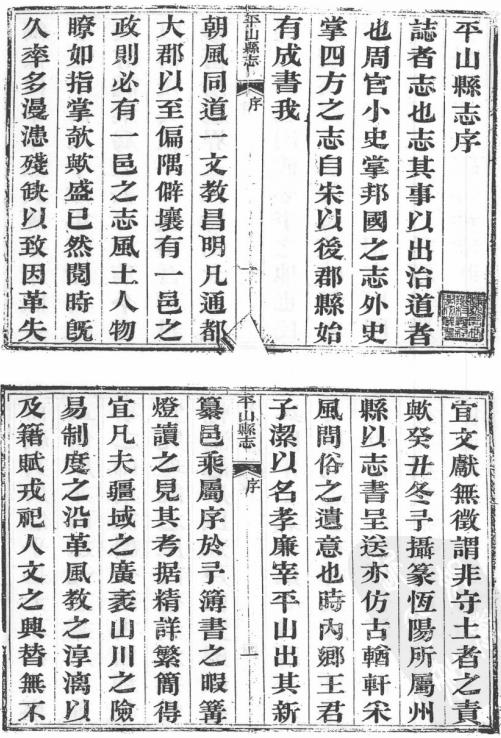 平山縣志序
誌者志也志其事以出治道者
也周官小史掌邦國之志外史
掌四方之志自宋以後郡縣始
有成書我
平山縣志 序
朝風同道一文教昌明凡通都
大郡以至偏隅僻壤有一邑之
政則必有一邑之志風土人物
瞭如指掌欹歟盛已然閱時旣
久率多漫漶殘缺以致因革失
宜文獻無徵謂非守土者之責
歟癸丑冬予攝篆恆陽所屬州
縣以志書呈送亦仿古輶軒采
風問俗之遺意也時內鄉王君
子潔以名孝廉宰平山出其新
平山縣志 序 一
纂邑乘屬序於予簿書之暇篝
燈讀之見其考据精詳繁簡得
宜凡夫疆域之廣袤山川之險
易制度之沿革風教之淳漓以
及籍賦戎祀人文之興替無不